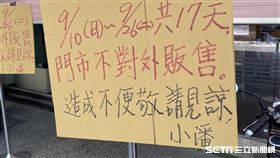 9/10(日)~9/26(二)共17天,
門市不對外販售。
造成不便敬請見諒
小潘
SETN三立新聞網